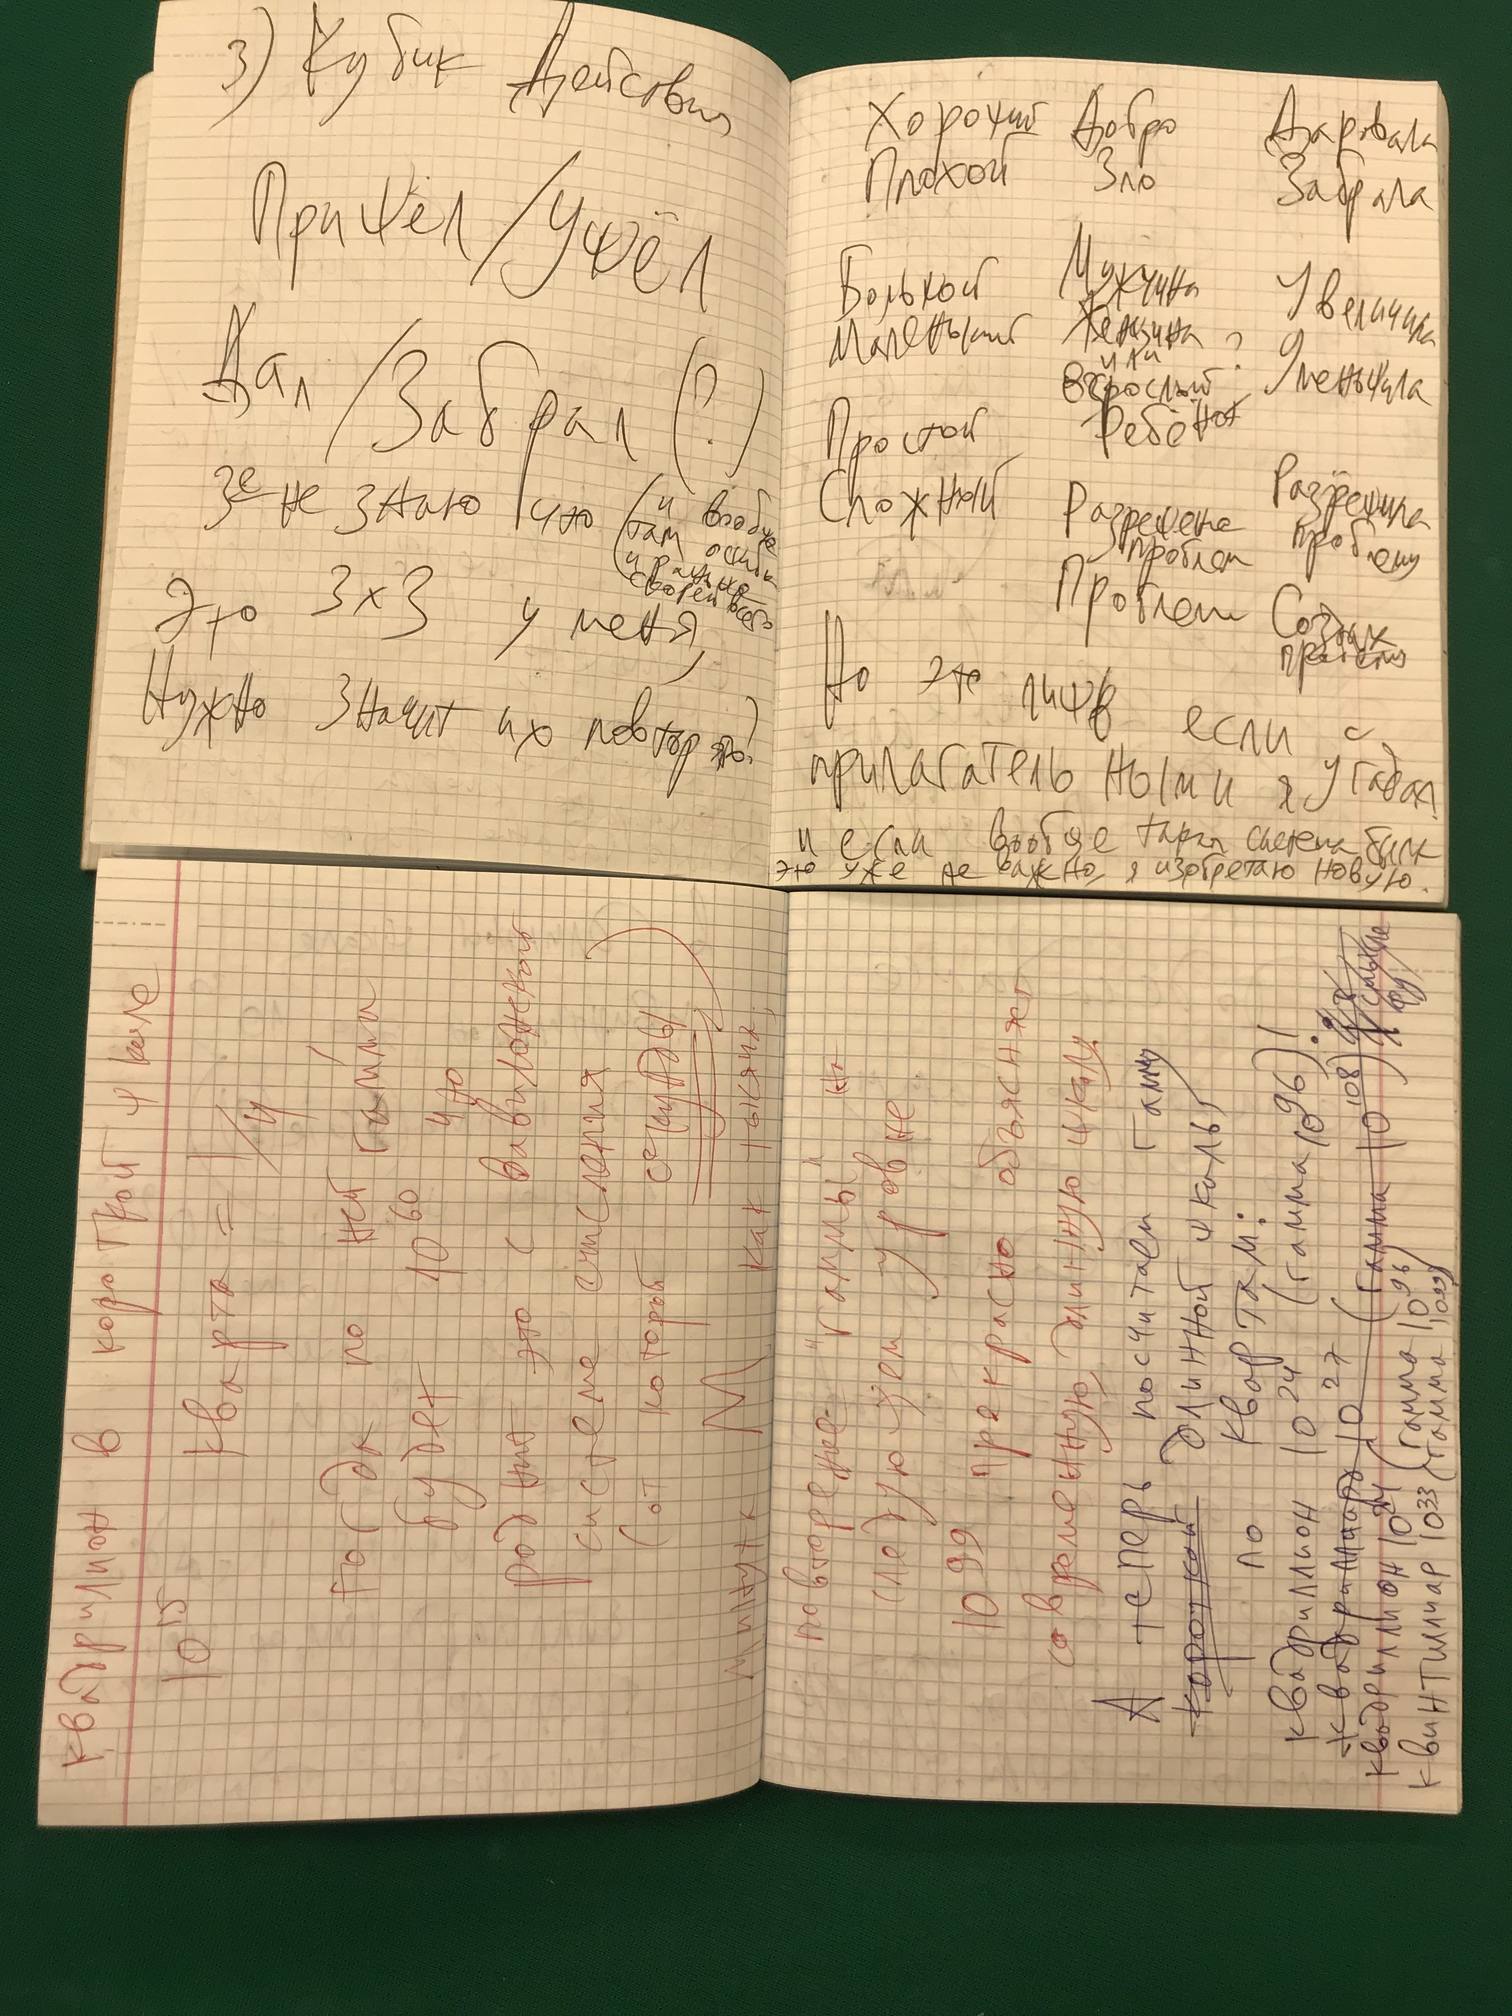 3) Кубик Действия
Пришёл/Ушёл
Дал/Забрал (?)
3е не знаю что (и вообще
там ошибка
и раньше
скорей всего
Это 3х3 у меня,
Нужно значит их повтор
Хороший Добро Даровала
Плохой Зло Забрала
Большой Мужчина Увеличила
Маленький Женщина ? Уменьшила
или
Взрослый
Ребёнок
Простой
Сложный
Разрешение Разрешила
проблем проблему
Проблем Создала
Но это лишь если с
прилагательными я угадал.
и если вообще такая система была
это уже не важно, я изобретаю новую.
квадрилион в короткой шкале
10 15
кварта = 1/4
тогда по ней гамма
будет 10 60 что
роднит это с вавилонской
системе счисления
(от которой секунды
минутк М как тысяча,
повторение "гаммы" на
следующем уровне
10 99 прекрасно объясняет
современную длинную шкалу
А теперь посчитаем гамму
короткой длинной шкалы
по квартам:
квадриллион 10 24 (гамма 10 96)!
квадриллиард 10 27 (гамма 10 108)
квадриллион 10 24 (гамма 10 96)
квинтиллиар 10 33 (гамма 10 99)